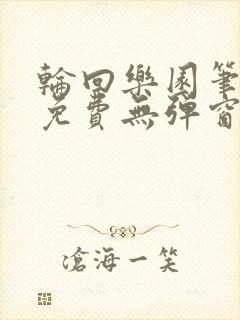 輪回樂園筆
免費無彈窗
滄海一笑